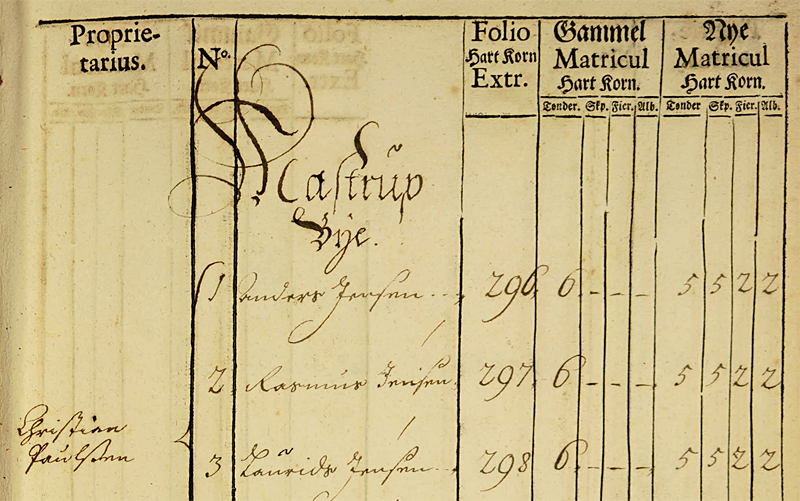 Proprie-
tarius.
No.
Folio
Hart Korn
Extr.
Gammel
Matricul
Hart Korn.
Nye
Matricul
Hart Korn.
Tønder. Skp. Fier. Alb. Tønder Skp. Fier. Alb.
Mastrup
Bye.
1 Anders Jensen 296 6 - - - 5 5 2 2
2 Rasmus Jensen 297 6 - - - 5 5 2 2
Christian
Paulsen
3 Laurids Jensen 298 6 - - - 5 5 2 2